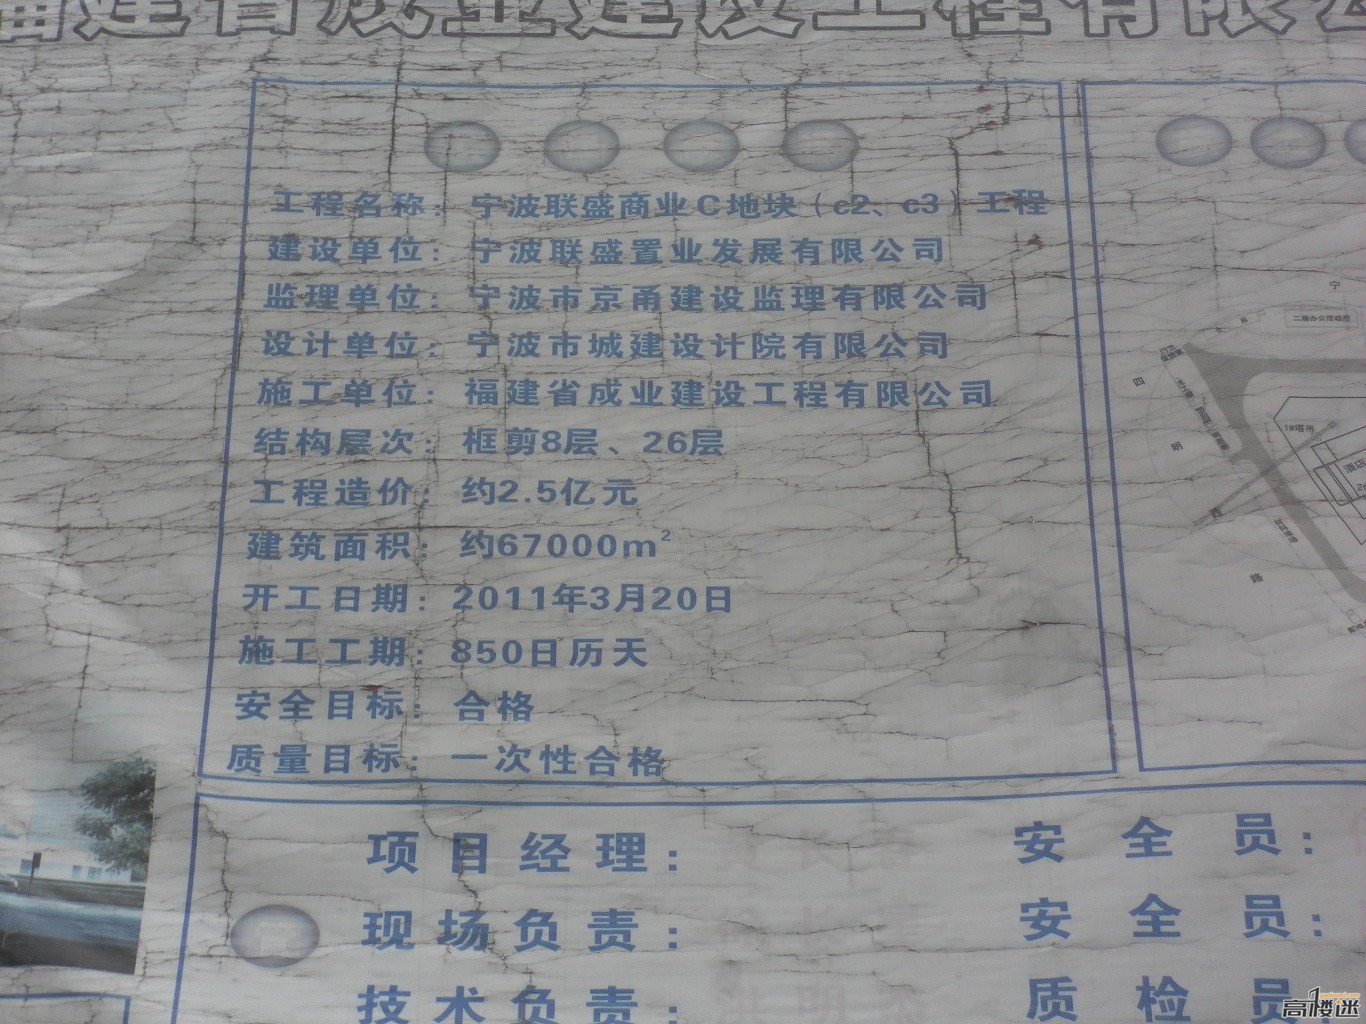 福建省成业建设工程有限公
工程名称：宁波联盛商业C地块（c2、c3）工程
建设单位：宁波联盛置业发展有限公司
监理单位：宁波市京甬建设监理有限公司
设计单位：宁波市城建设计院有限公司
施工单位：福建省成业建设工程有限公司
结构层次：框剪8层、26层
工程造价：约2.5亿元
建筑面积：约67000m²
开工日期：2011年3月20日
施工工期：850日历天
安全目标：合格
质量目标：一次性合格
宁
二层办公活动房
四
明
西
路
1#塔吊
酒店
项目经理：
安全员：
现场负责：
安全员：
技术负责：
质检员
高楼迷